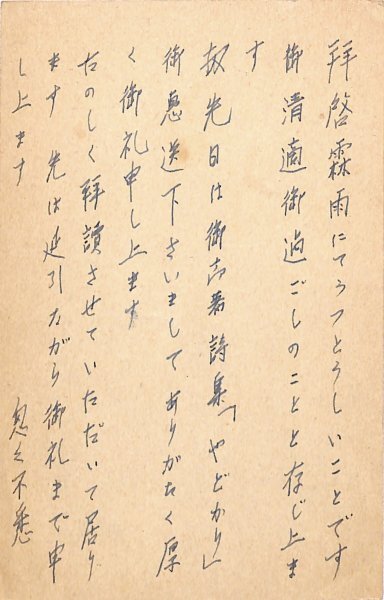 拝啓霖雨にてうつとうしいことです
御清適御過ごしのことと存じ上ま
す
扨先日は御高著詩集「やどかり」
御恵送下さいましてありがたく厚
く御礼申し上ます
たのしく拝讀させていただいて居り
ます 先は延引ながら御礼まで申
し上ます
怱々不悉